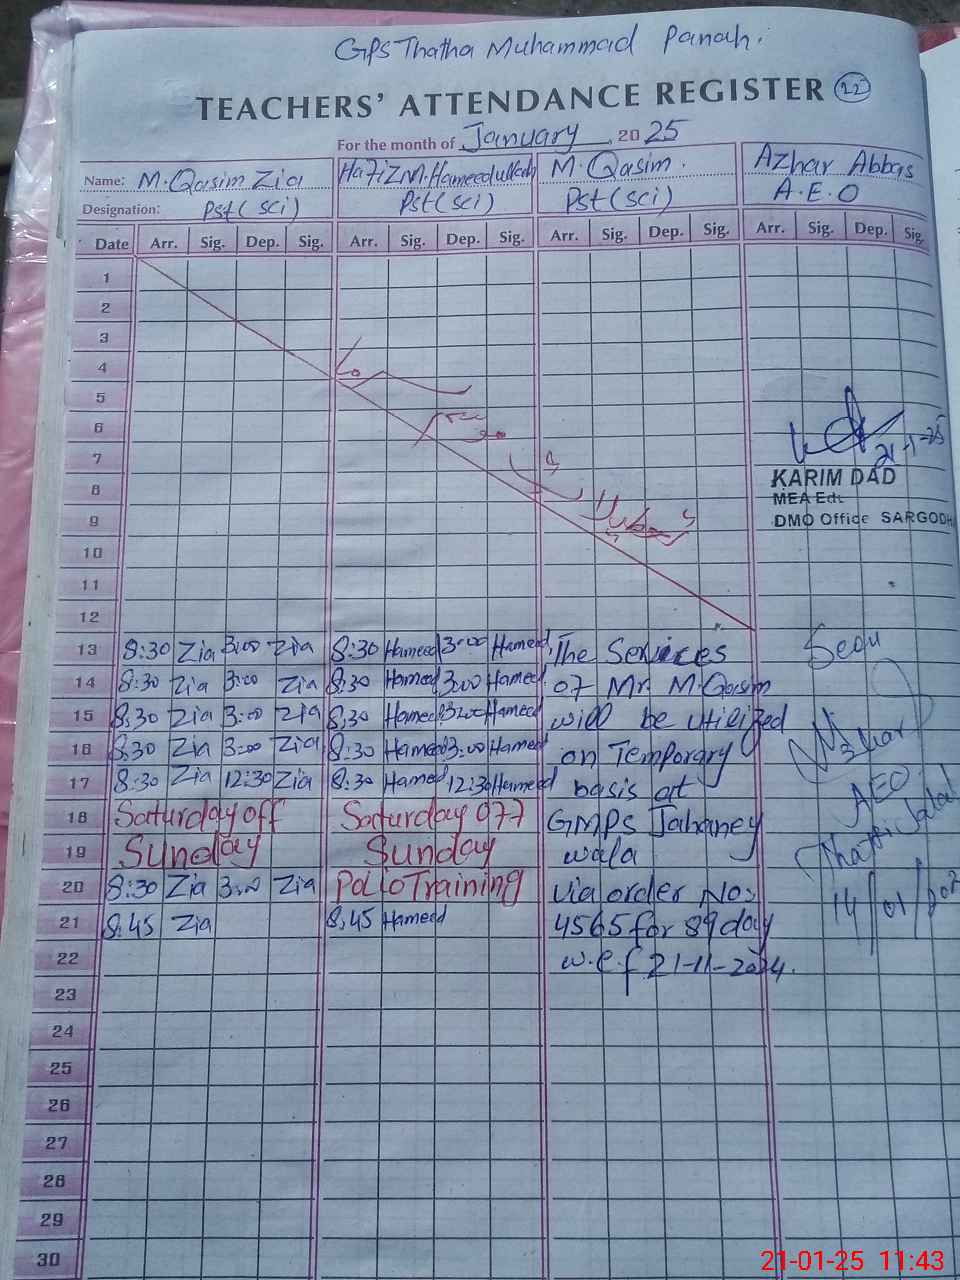 GPS Thatha Muhammad Panah.
TEACHERS' ATTENDANCE REGISTER 22
For the month of January 2025
Name: M. Qasim Zia Hafiz M. Hameedullah M. Qasim. Azhar Abbas
Designation: Pst (sci) Pst (sci) Pst (sci) A.E.O
Date Arr. Sig. Dep. Sig. Arr. Sig. Dep. Sig. Arr. Sig. Dep. Sig. Arr. Sig. Dep. Sig.
1
2
3
4
5
6
7 21-1-25
8 KARIM DAD
MEA Edu
9 DMO Office SARGODHA
10
11
12
13 8:30 Zia 3:00 Zia 8:30 Hameed 3:00 Hameed The Services Seen
14 8:30 Zia 3:00 Zia 8:30 Hameed 3:00 Hameed of Mr. M. Qasim
15 8:30 Zia 3:00 Zia 8:30 Hameed 3:00 Hameed will be utilized
16 8:30 Zia 3:00 Zia 8:30 Hameed 3:00 Hameed on Temporary Azhar
17 8:30 Zia 12:30 Zia 8:30 Hameed 12:30 Hameed basis at AEO
18 Saturday off Saturday off GMPS Jahaney
19 Sunday Sunday wala
20 8:30 Zia 3:00 Zia Polio Training via order No:
21 8:45 Zia 8:45 Hameed 4565 for 89 day 14/01/202
22 w.e.f 21-11-2024.
23
24
25
26
27
28
29
30
21-01-25 11:43